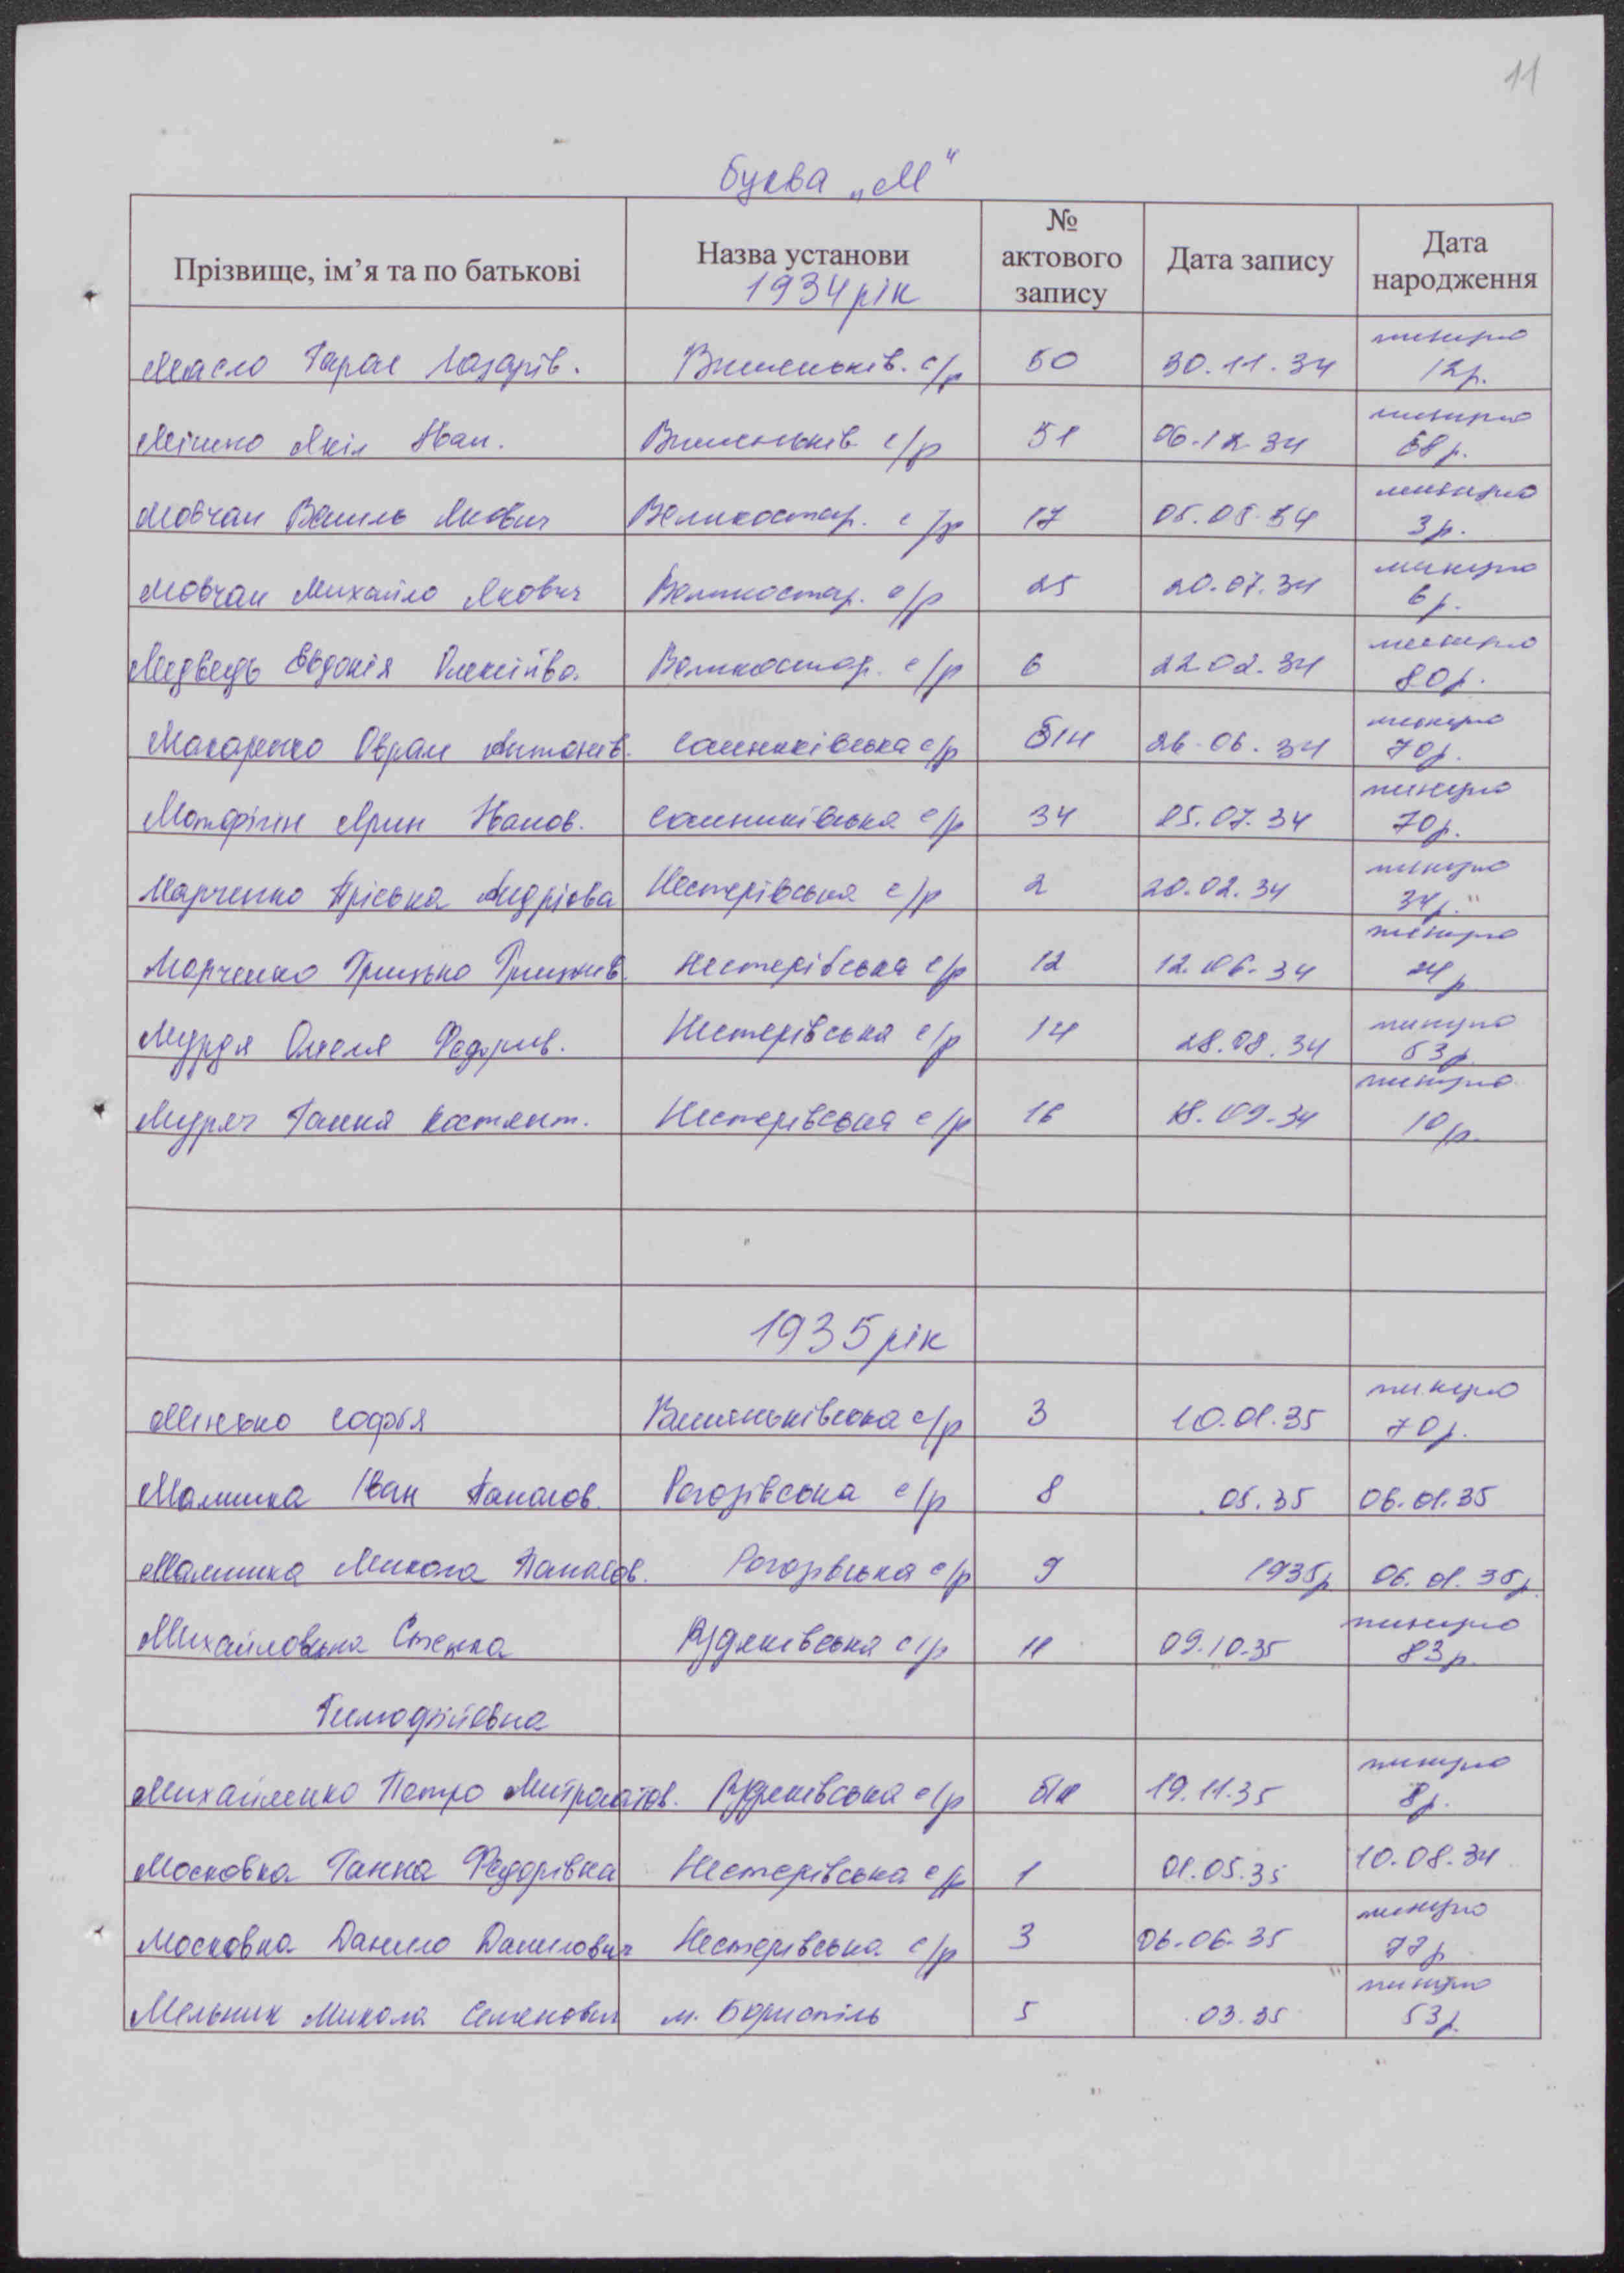 11
буква „М"
Прізвище, ім'я та по батькові Назва установи 1934 рік № актового запису Дата запису Дата народження
Масло Тарас Лазарів. Вишеньків. с/р 50 30.11.34 минуло 12р.
Мішко Якіл Іван. Вишеньків с/р 51 06.12.34 минуло 68р.
Мовчан Василь Якович Великостар. с/р 17 минуло 3р.
Мовчан Михайло Якович Великостар. с/р 25 20.07.34 минуло 6р.
Медведь Євдокія Олексіївa. Великостар. с/р 6 22.02.34 минуло 80р.
Макаренко Оврам Антонів. Сошниківська с/р б/н 26.06.34 минуло 70р.
Іванов. Сошниківська с/р 34 минуло 70р.
Марченко Пріська Андріова Нестерівська с/р 2 20.02.34 минуло 34р.
Марченко Грицько Грицьків. Нестерівська с/р 12 12.06.34 минуло
Федорів. Нестерівська с/р 14 28.08.34 минуло 63р.
Ганна Костянт. Нестерівська с/р 16 18.09.34 минуло 10р.
1935 рік
Мінько Софія Вишеньківська с/р 3 10.01.35 минуло 70р.
Малишка Іван Панасов. Рогозівська с/р 8 .05.35 06.01.35
Малишка Микола Панасов. Рогозівська с/р 9 1935р 06.01.35р.
Михайловська Степка Рудяківська с/р 11 09.10.35 минуло 83р.
Тимофіївна
Михайленко Петро Митрофатов. Рудяківська с/р б/н 19.11.35 минуло 8р.
Московка Ганна Федорівна Нестерівська с/р 1 01.05.35 10.08.34
Московка Данило Данилович Нестерівська с/р 3 06.06.35 минуло 77р
Мельник Микола Семенович м. Бориспіль 5 .03.35 минуло 53р.